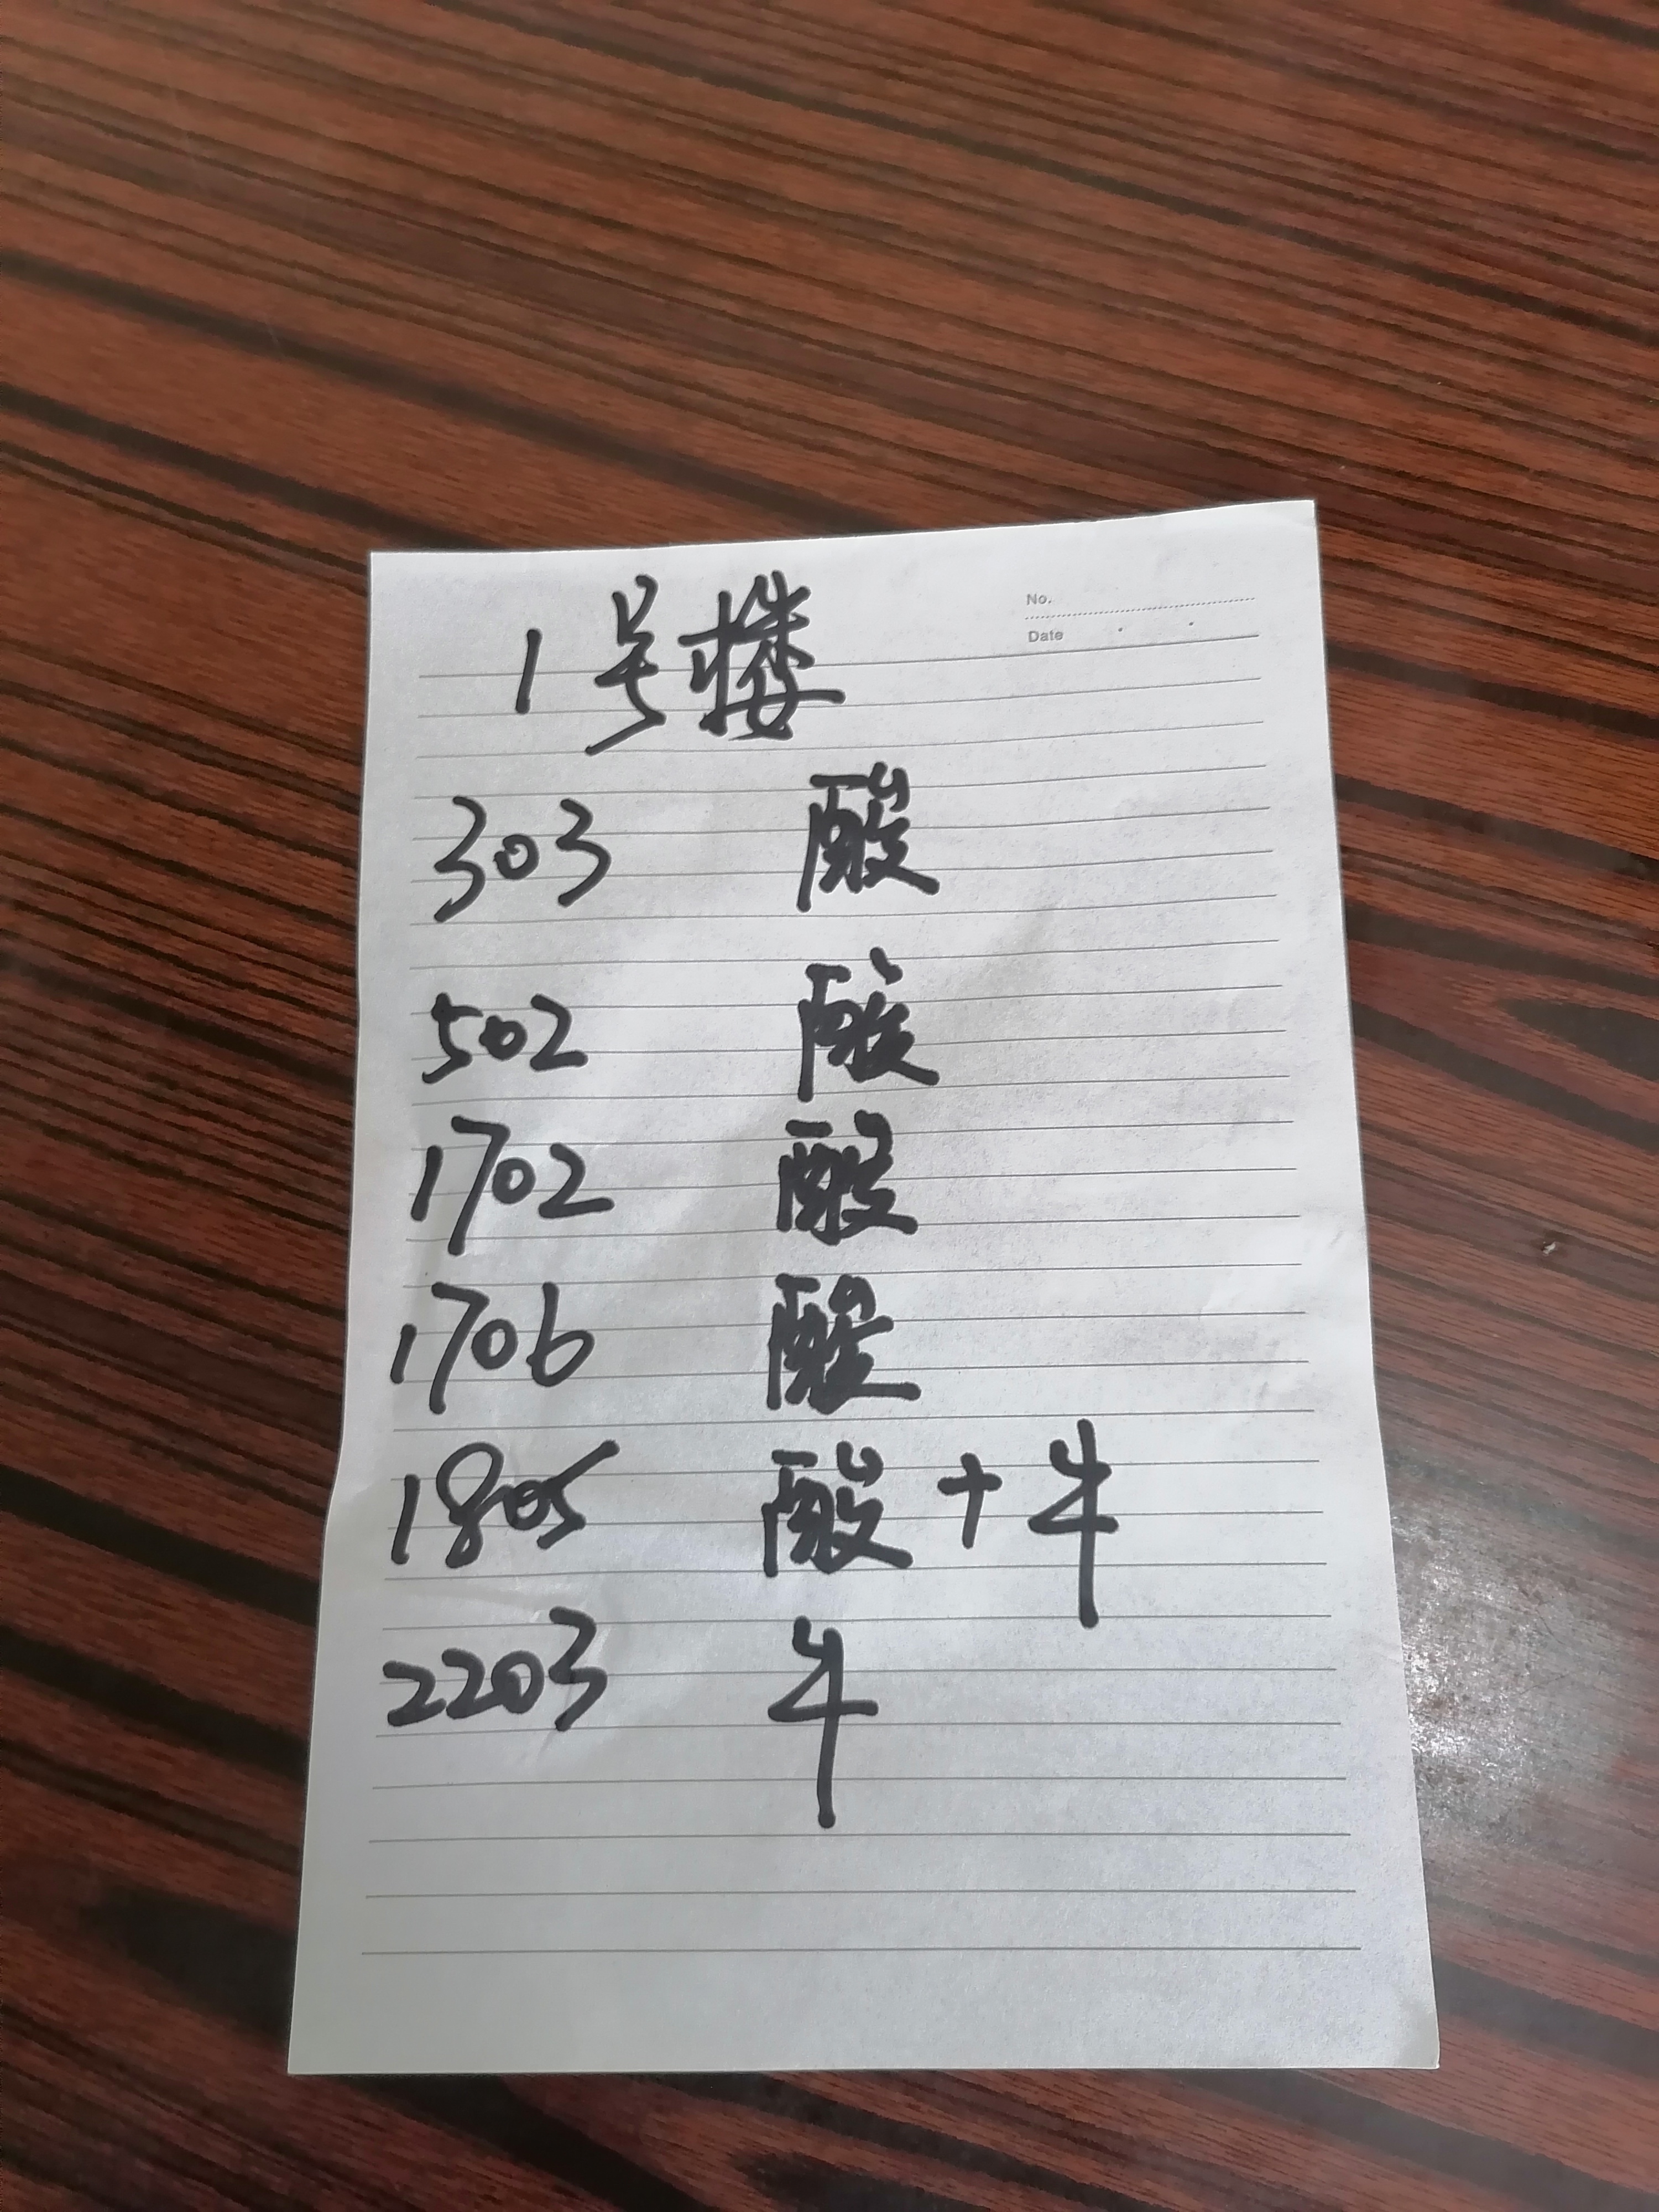 No.
Date
1号楼
303 酸
502 酸
1702 酸
1706 酸
1805 酸+牛
2203 牛